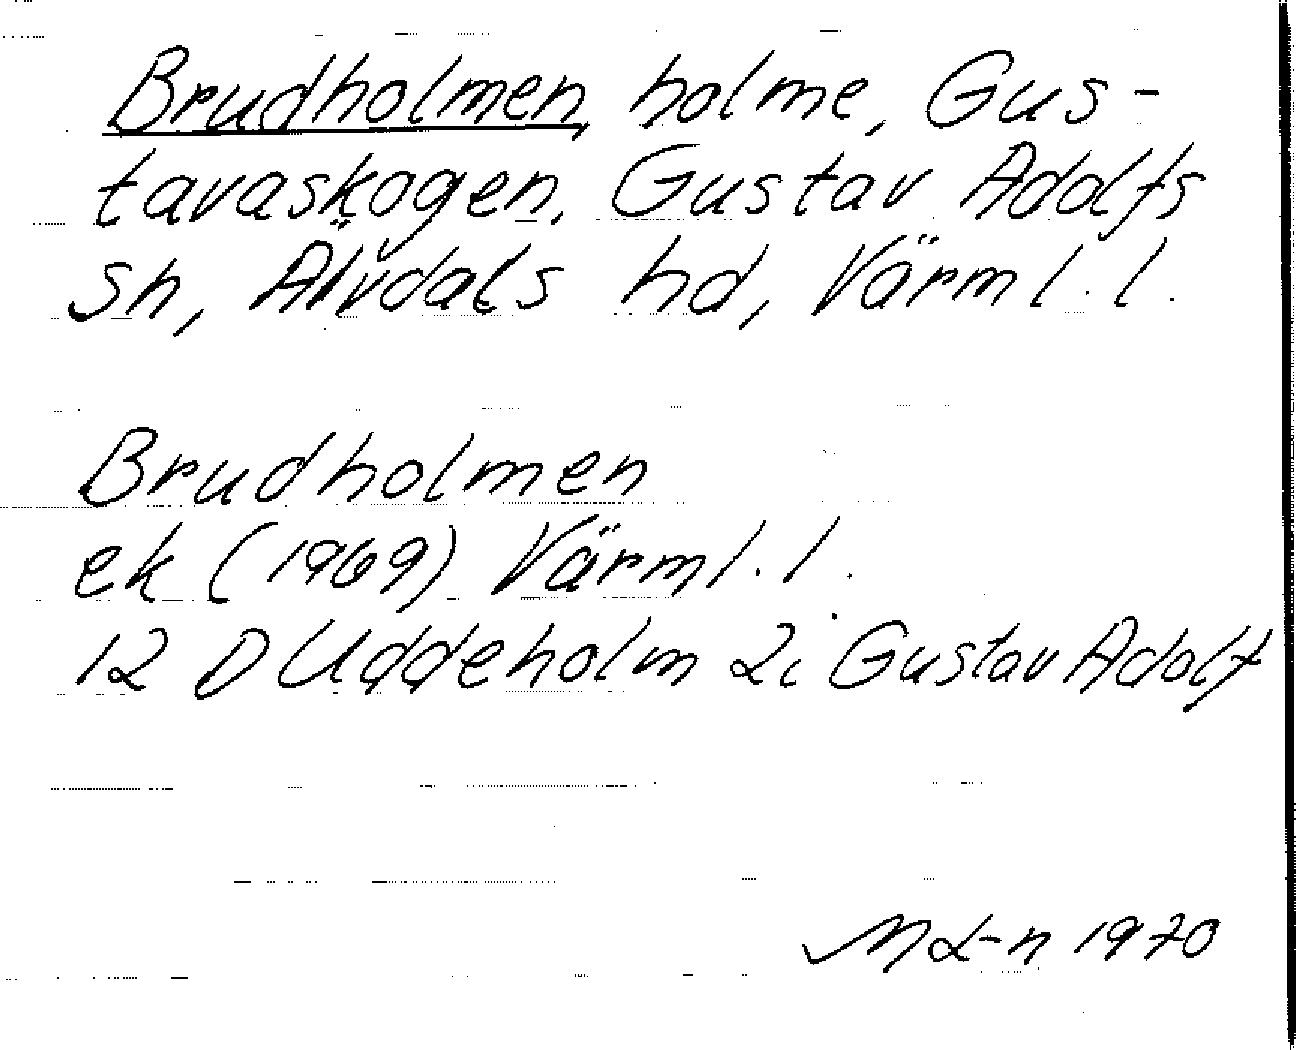 Brudholmen, holme, Gus-
tavaskogen, Gustav Adolfs
sn, Älvdals hd, Värml. l.
Brudholmen
ek (1969) Värml. l.
12 D Uddeholm 2i Gustav Adolf
1970